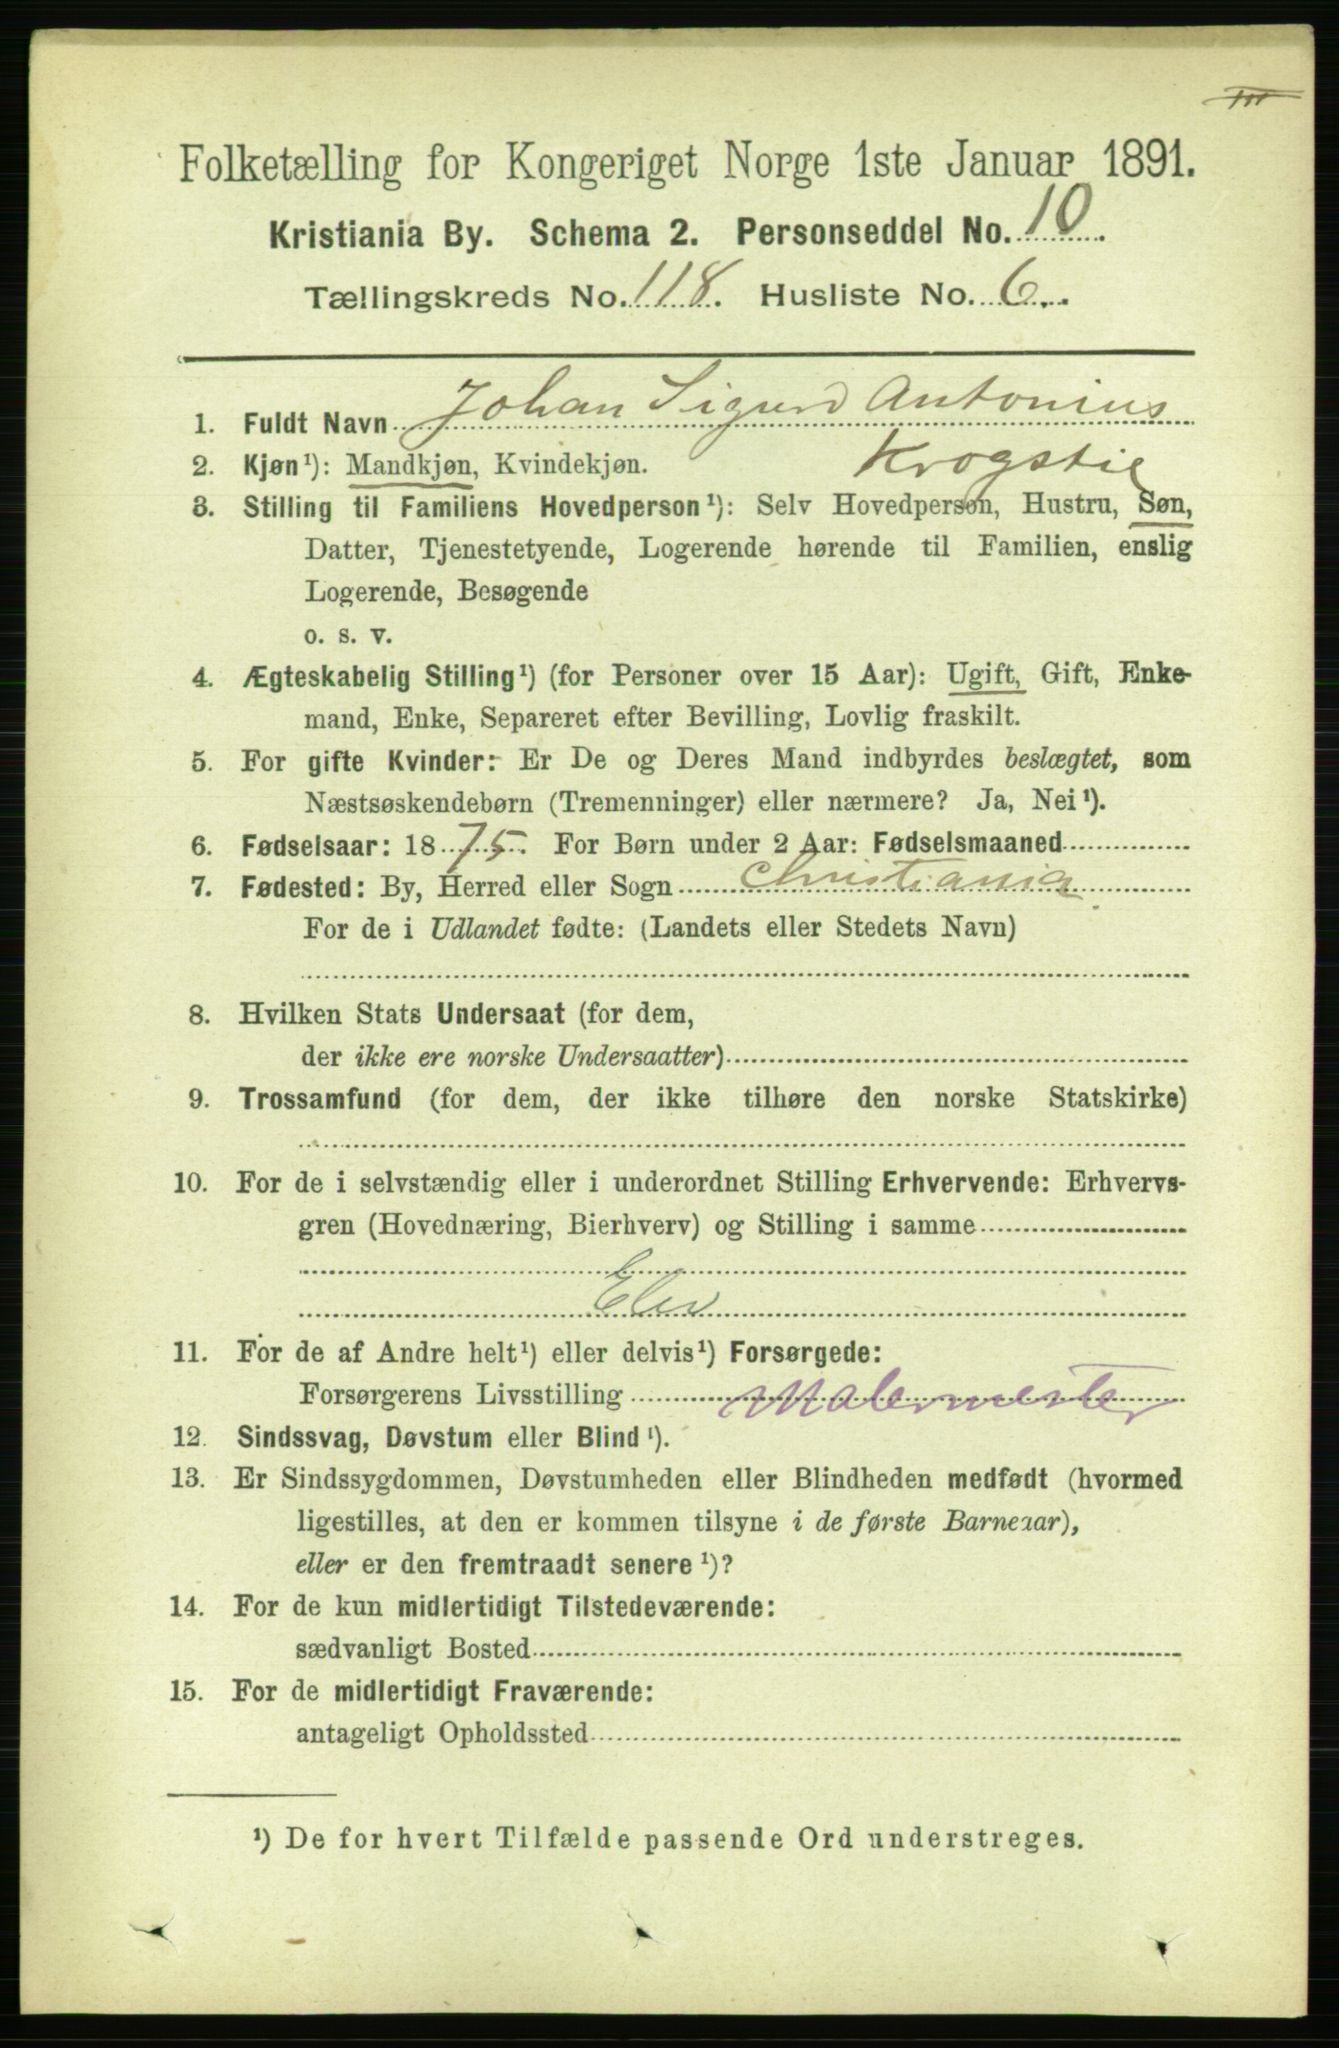 III
Folketælling for Kongeriget Norge 1ste Januar 1891.
Kristiania By. Schema 2. Personseddel No. 10.
Tællingskreds No. 118. Husliste No. 6.
1. Fuldt Navn Johan Sigurd Antonius
Krogstie
2. Kjøn¹): Mandkjøn, Kvindekjøn.
3. Stilling til Familiens Hovedperson¹): Selv Hovedperson, Hustru, Søn,
Datter, Tjenestetyende, Logerende hørende til Familien, enslig
Logerende, Besøgende
o. s. v.
4. Ægteskabelig Stilling¹) (for Personer over 15 Aar): Ugift, Gift, Enke-
mand, Enke, Separeret efter Bevilling, Lovlig fraskilt.
5. For gifte Kvinder: Er De og Deres Mand indbyrdes beslægtet, som
Næstsøskendebørn (Tremenninger) eller nærmere? Ja, Nei¹).
6. Fødselsaar: 1875. For Børn under 2 Aar: Fødselsmaaned
7. Fødested: By, Herred eller Sogn Christiania
For de i Udlandet fødte: (Landets eller Stedets Navn)
8. Hvilken Stats Undersaat (for dem,
der ikke ere norske Undersaatter)
9. Trossamfund (for dem, der ikke tilhøre den norske Statskirke)
10. For de i selvstændig eller i underordnet Stilling Erhvervende: Erhvervs-
gren (Hovednæring, Bierhverv) og Stilling i samme
Elev
11. For de af Andre helt¹) eller delvis¹) Forsørgede:
Forsørgerens Livsstilling Malermester
12. Sindssvag, Døvstum eller Blind¹).
13. Er Sindssygdommen, Døvstumheden eller Blindheden medfødt (hvormed
ligestilles, at den er kommen tilsyne i de første Barneaar),
eller er den fremtraadt senere¹)?
14. For de kun midlertidigt Tilstedeværende:
sædvanligt Bosted
15. For de midlertidigt Fraværende:
antageligt Opholdssted
¹) De for hvert Tilfælde passende Ord understreges.